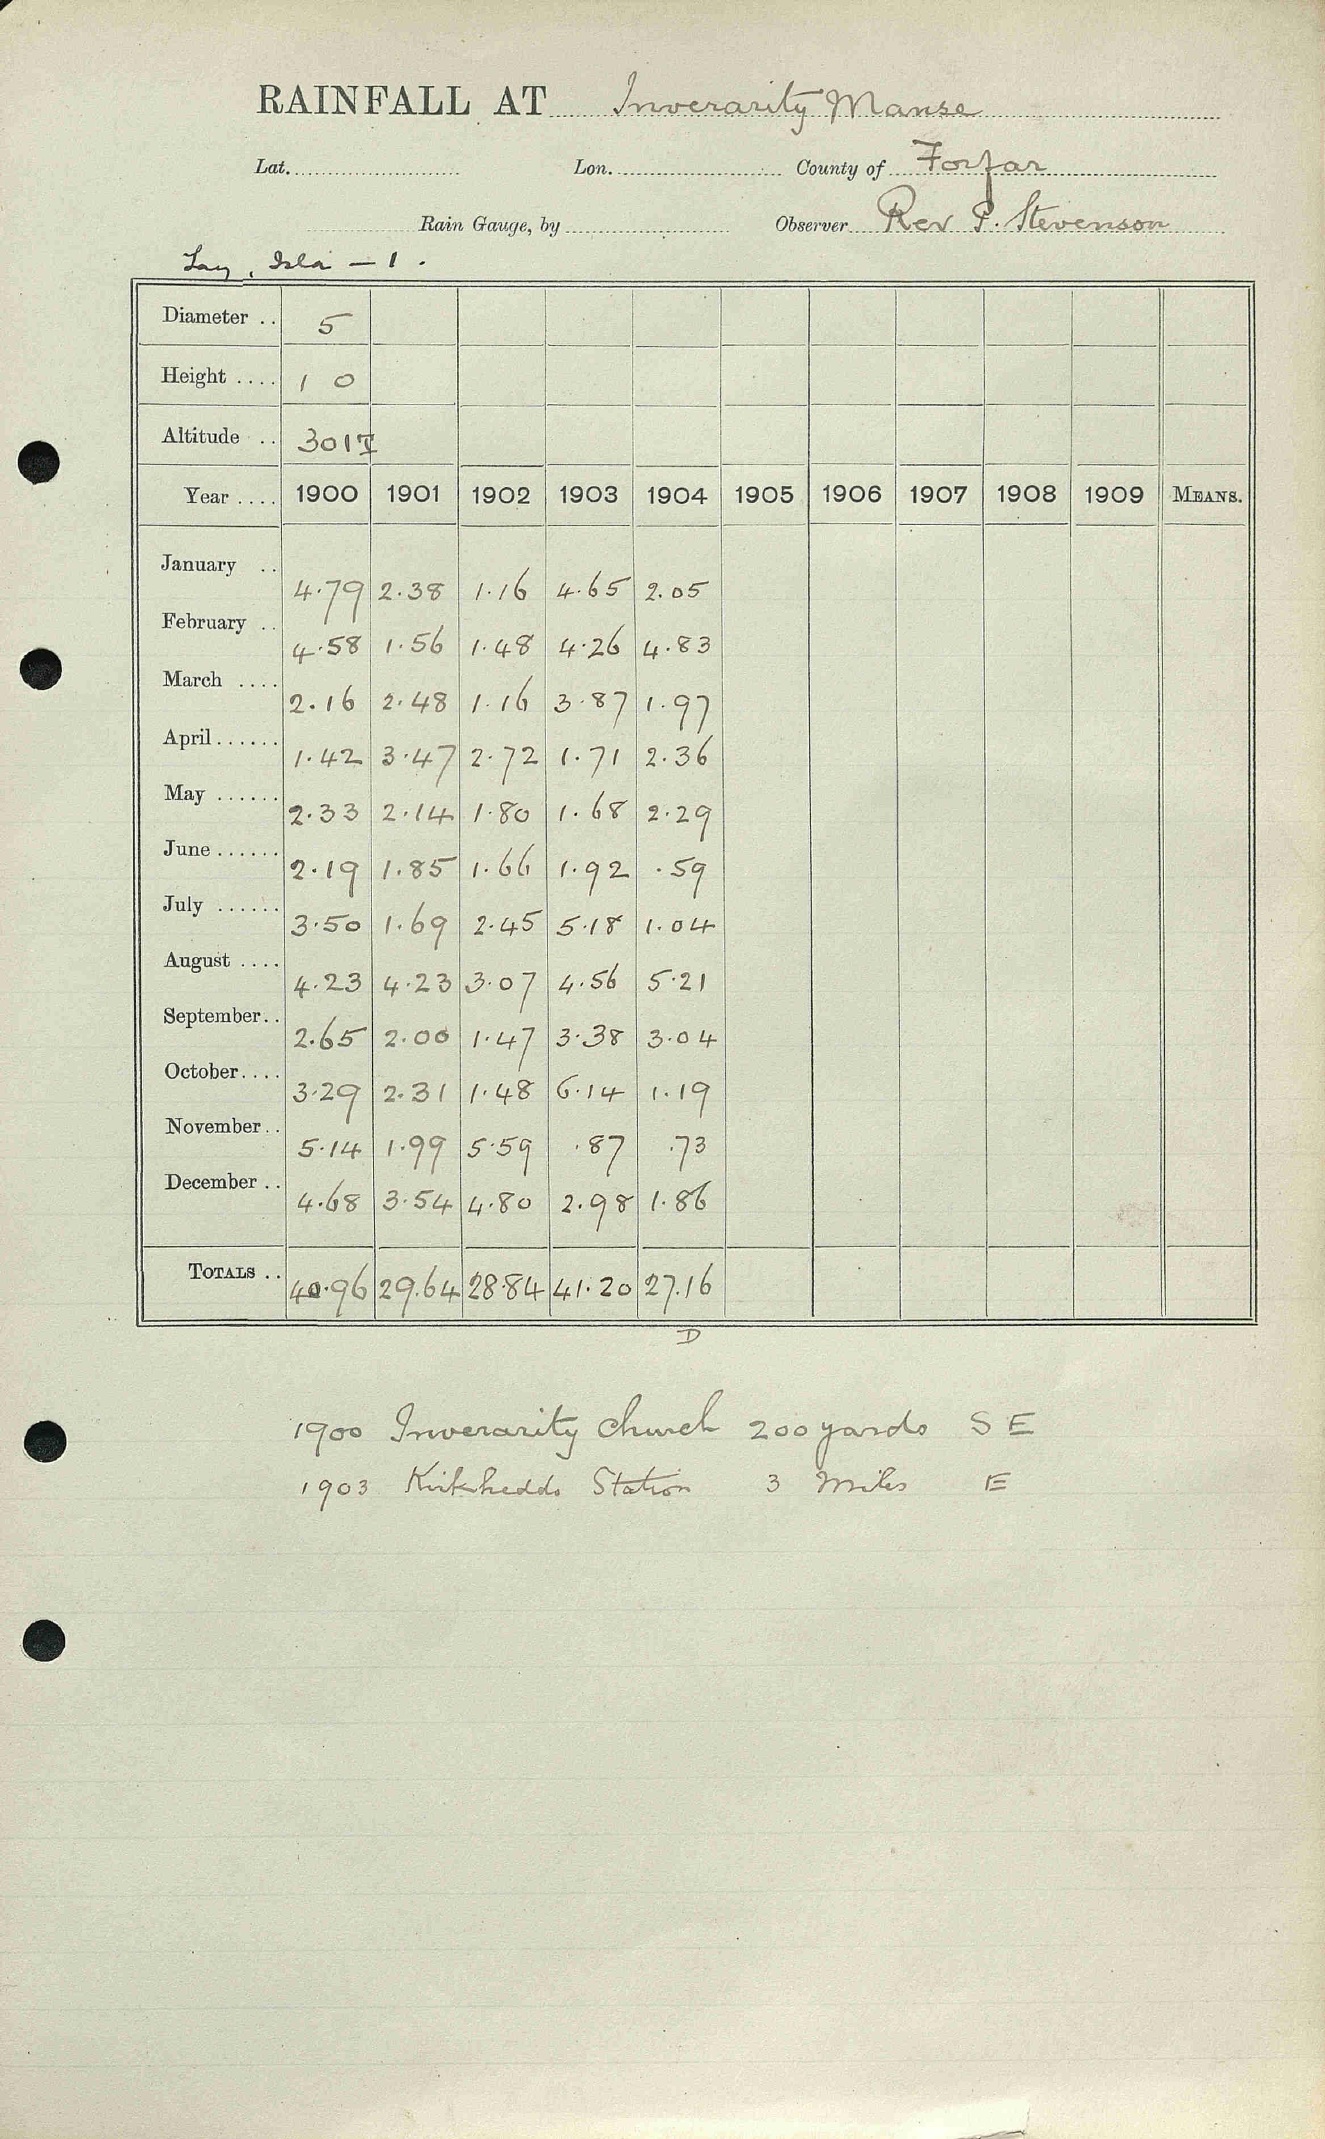 RAINFALL AT Inverarity Manse
Lat. Lon. County of Forfar
Rain Gauge, by Observer Rev P. Stevenson
Tay, Isla — 1.
Diameter .. 5
Height .... 1 0
Altitude .. 301T
Year .... 1900 1901 1902 1903 1904 1905 1906 1907 1908 1909 MEANS.
January .. 4.79 2.38 1.16 4.65 2.05
February .. 4.58 1.56 1.48 4.26 4.83
March .... 2.16 2.48 1.16 3.87 1.97
April...... 1.42 3.47 2.72 1.71 2.36
May ...... 2.33 2.14 1.80 1.68 2.29
June ...... 2.19 1.85 1.66 1.92 .59
July ...... 3.50 1.69 2.45 5.18 1.04
August .... 4.23 4.23 3.07 4.56 5.21
September.. 2.65 2.00 1.47 3.38 3.04
October.... 3.29 2.31 1.48 6.14 1.19
November.. 5.14 1.99 5.59 .87 .73
December .. 4.68 3.54 4.80 2.98 1.86
TOTALS .. 40.96 29.64 28.84 41.20 27.16
D
1900 Inverarity Church 200 yards S E
1903 Station 3 Miles E